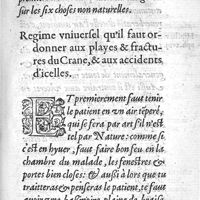 sur les six choses non naturelles.
Regime vniuersel qu'il faut or-
donner aux playes & fractu-
res du Crane, & aux accidents
d'icelles.
ET premierement faut tenir
le patient en vn air tēperé,
qui se fera par art s'il n'est
tel par Nature: comme si
c'est en hyuer, faut faire bon feu en la
chambre du malade, les fenestres &
portes bien closes: & aussi à lors que tu
traitteras & penseras le patient, te faut